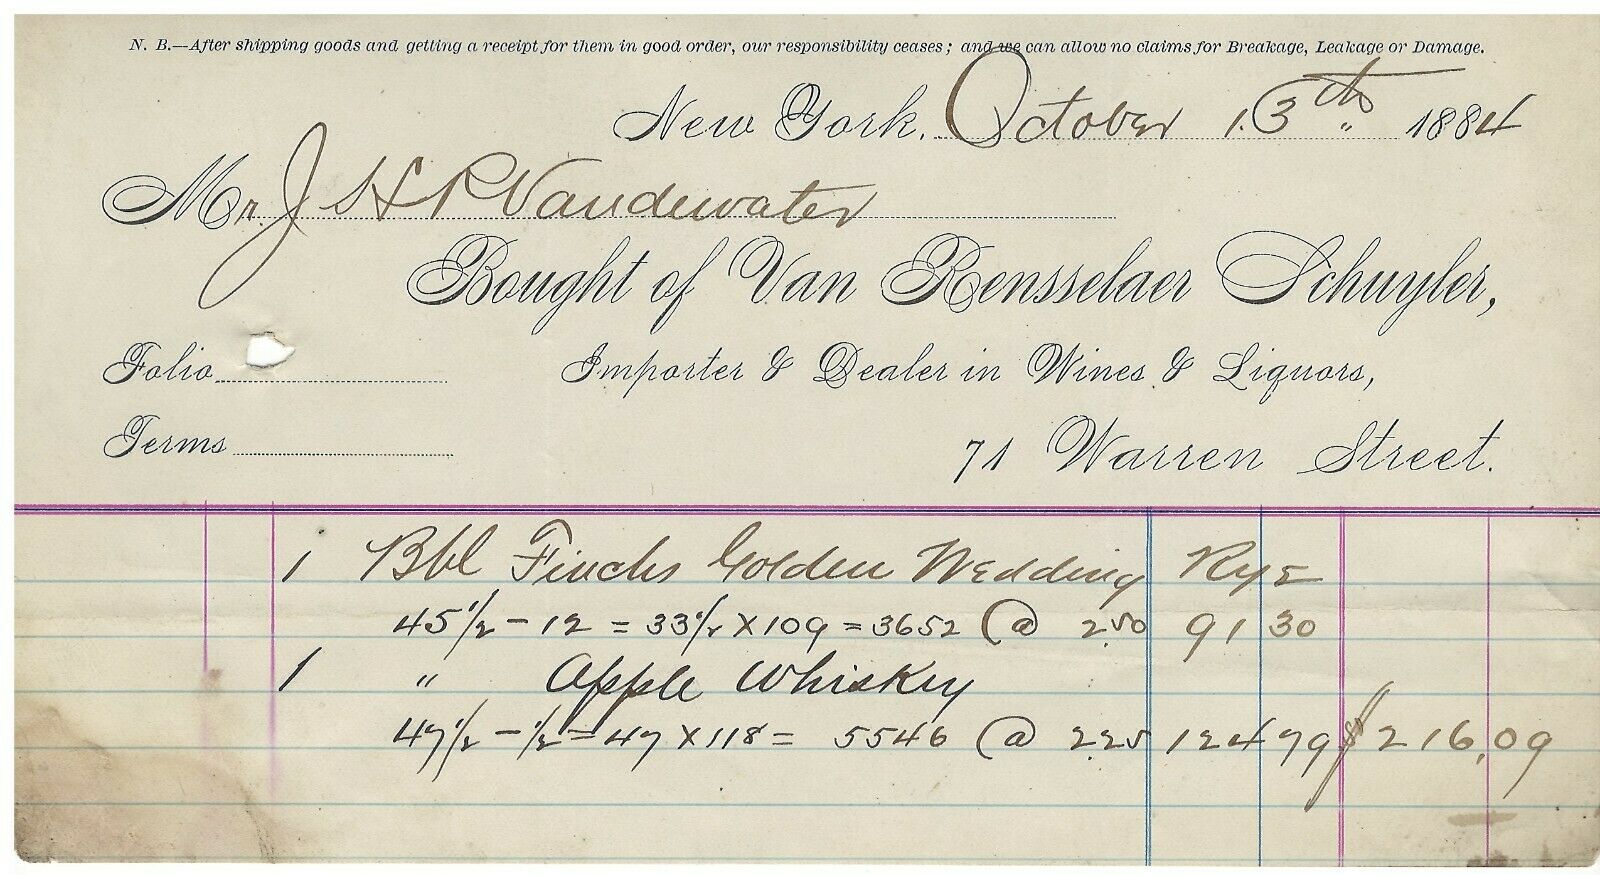 N. B.—After shipping goods and getting a receipt for them in good order, our responsibility ceases; and we can allow no claims for Breakage, Leakage or Damage.
New York, October 13th " 1884
Mr. J H R Vandewater
Bought of Van Rensselaer Schuyler,
Folio
Importer & Dealer in Wines & Liquors,
Terms
71 Warren Street.
1 Bbl Finchs Golden Wedding Rye
45 1/2 - 12 = 33 1/2 X 109 = 3652 @ 2.50 91 30
1 " Apple Whiskey
47 1/2 - 1/2 = 47 X 118 = 5546 @ 2.25 124 79 $216.09